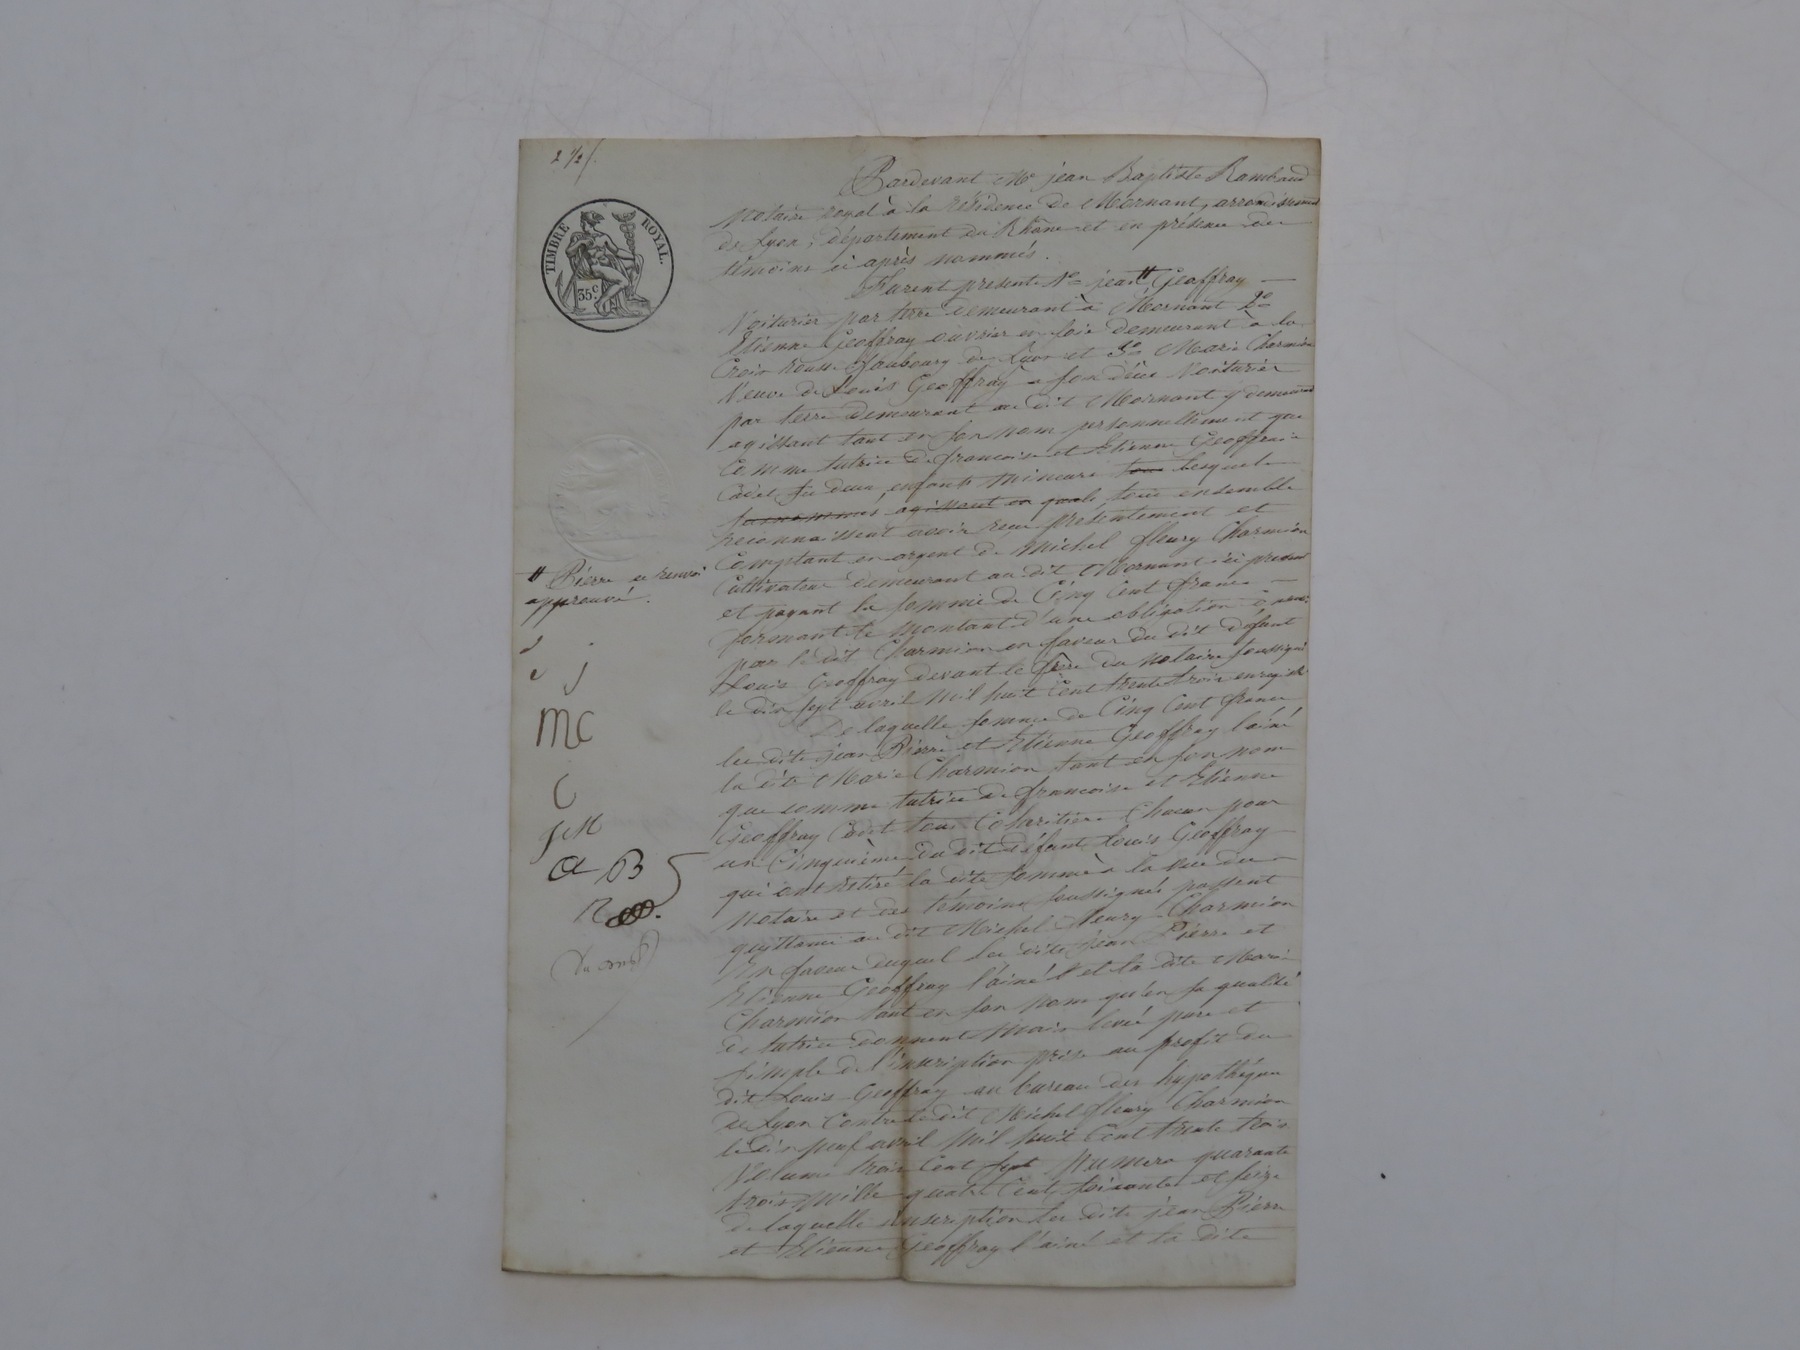 2 1/2
TIMBRE ROYAL.
35 c.
Pardevant Me jean Baptiste Rambaud
notaire royal à la résidence de Mornant, arrondissement
de Lyon, département du Rhône et en présence des
témoins ci après nommés.
Furent présents 1o jean # Geoffray
Voiturier par terre demeurant à Mornant 2o
Etienne Geoffray ouvrier en soie demeurant à la
Croix Rousse faubourg de Lyon et 3o Marie Charmion
Veuve de Louis Geoffray a son décès Voiturier
par terre demeurant au dit Mornant y demeurant
agissant tant en son nom personnellement que
Comme tutrice de francoise et Etienne Geoffraie
Cadet ses deux enfants mineurs tous lesquels
susnommés agissant en quals tous ensemble
reconnaissent avoir reçu présentement et
Comptant en argent de Michel fleury Charmion
Cultivateur demeurant au dit Mornant ici présent
et payant la somme de Cinq Cent francs
formant le montant d'une obligation
par le dit Charmion en faveur du dit défunt
Louis Geoffray devant le père du notaire soussigné
le dix sept avril mil huit Cent trente trois enregistré
De laquelle somme de Cinq Cent francs
les dits jean Pierre et Etienne Geoffray l'ainé
la dite Marie Charmion tant en son nom
que comme tutrice de francoise et Etienne
Geoffray Cadet tous Cohéritiers Chacun pour
un Cinquième du dit défunt Louis Geoffray
qui ont retiré la dite somme à la vue du
notaire et des témoins soussignés passent
quittance au dit Michel fleury Charmion
En faveur duquel les dits jean Pierre et
Etienne Geoffray l'ainé et la dite Marie
Charmion tant en son nom qu'en sa qualité
de tutrice donnent main levée pure et
simple de l'inscription prise au profit du
dit Louis Geoffray au bureau des hypothèques
de Lyon Contre le dit Michel fleury Charmion
le dix neuf avril mil huit Cent trente trois
Volume trois Cent sept Numero quarante
trois mille quatre Cent soixante et seize
de laquelle inscription les dits jean Pierre
et Etienne Geoffray l'ainé et la dite
# Pierre ce renvoi
approuvé.
j
MC
C
JM
a B
R